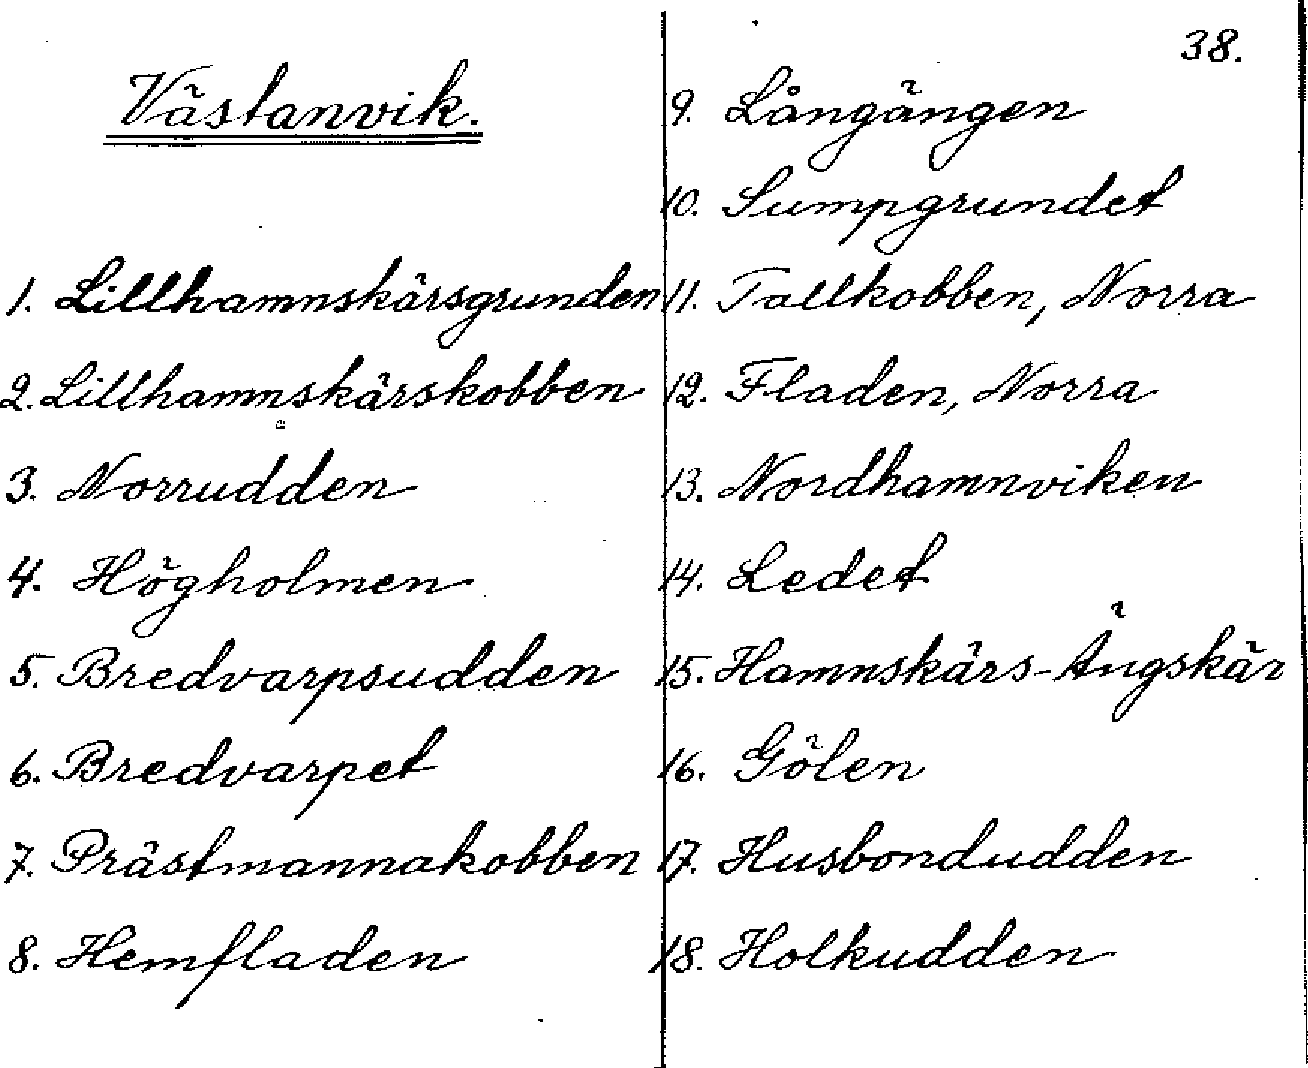 38.
Västanvik.
1. Lillhamnskärsgrunden
2. Lillhamnskärskobben
3. Norrudden
4. Högholmen
5. Bredvarpsudden
6. Bredvarpet
7. Prästmannakobben
8. Hemfladen
9. Långängen
10. Sumpgrundet
11. Tallkobben, Norra
12. Fladen, Norra
13. Nordhamnviken
14. Ledet
15. Hamnskärs-Ängskär
16. Gölen
17. Husbondudden
18. Holkudden